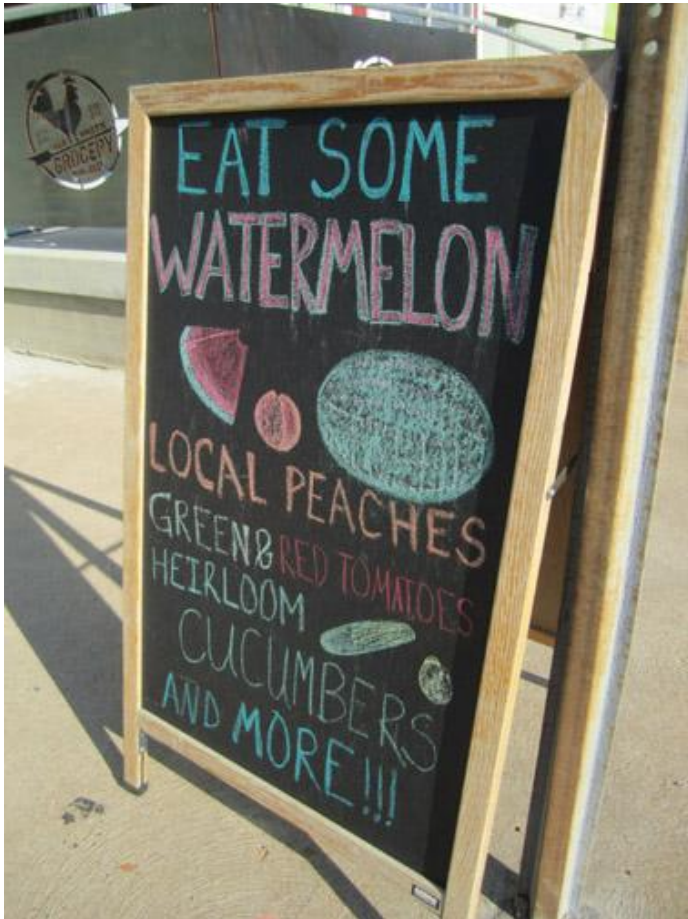 GROCERY
EAT SOME
WATERMELON
LOCAL PEACHES
GREEN & RED TOMATOES
HEIRLOOM
CUCUMBERS
AND MORE!!!